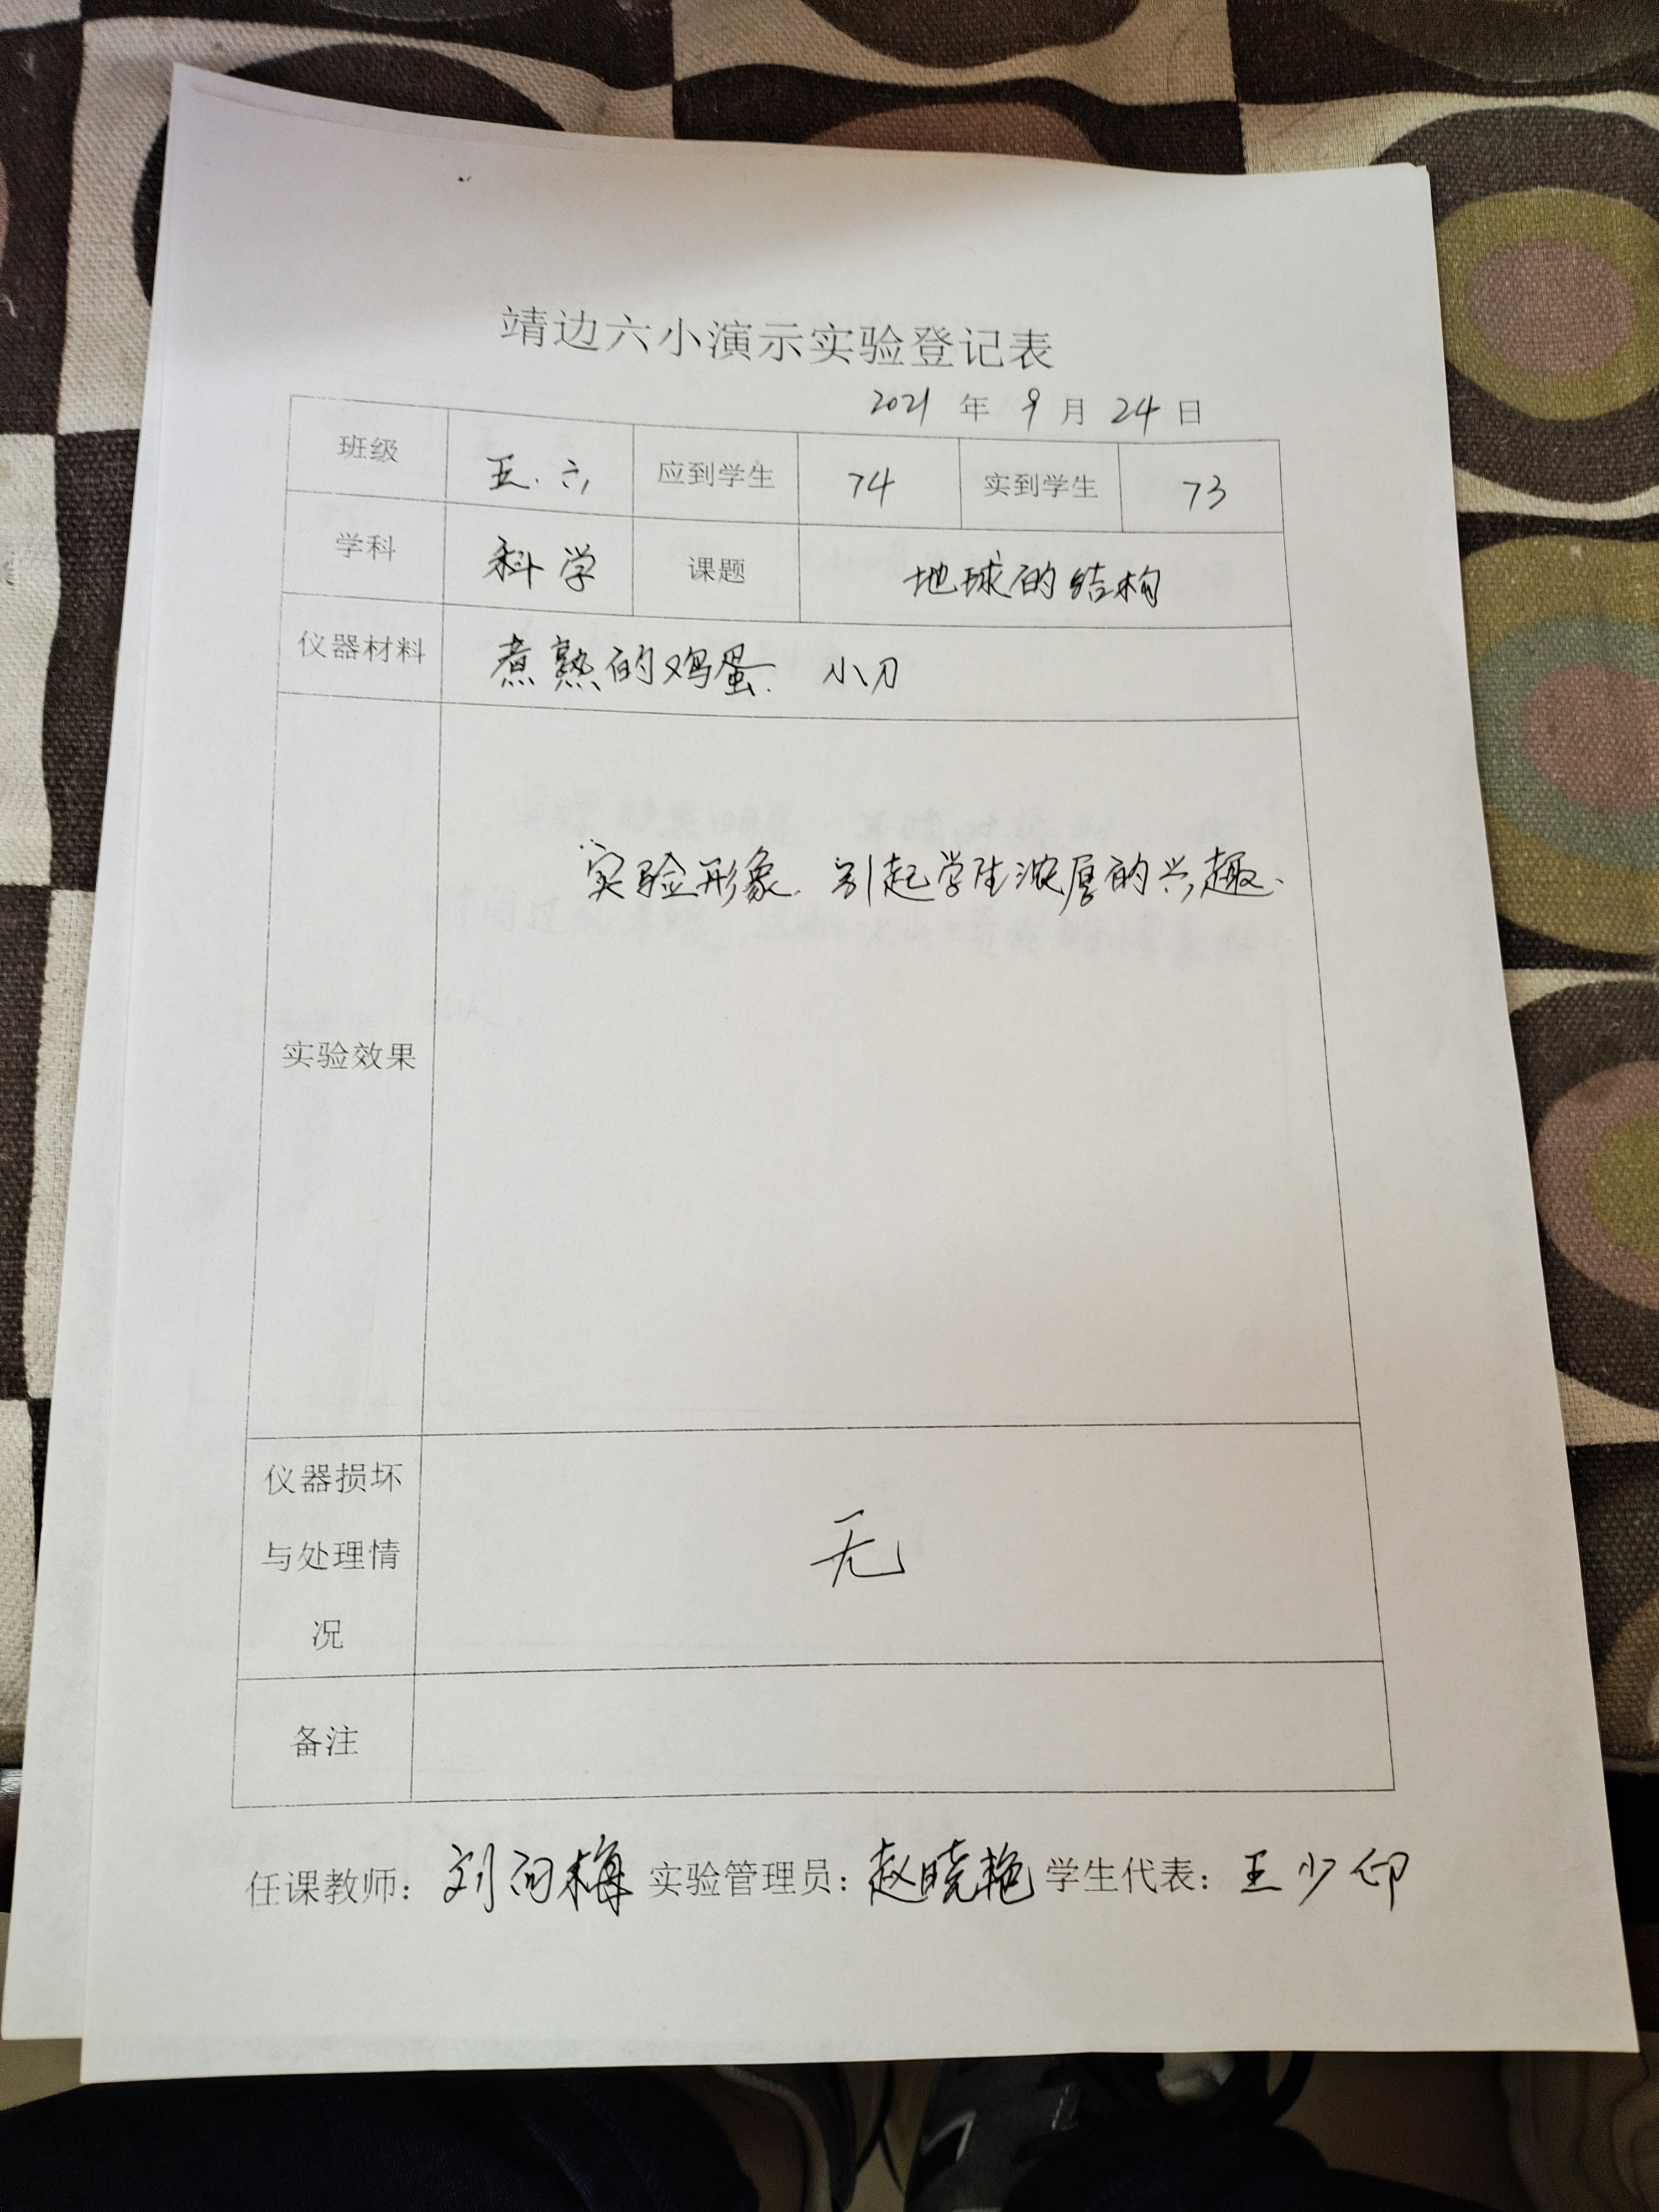 靖边六小演示实验登记表
2021 年 9 月 24 日
班级 五.六 应到学生 74 实到学生 73
学科 科学 课题 地球的结构
仪器材料 煮熟的鸡蛋. 小刀
实验效果 实验形象. 引起学生浓厚的兴趣.
仪器损坏
与处理情
况
无
备注
任课教师: 刘 梅 实验管理员: 赵晓艳 学生代表: 王少